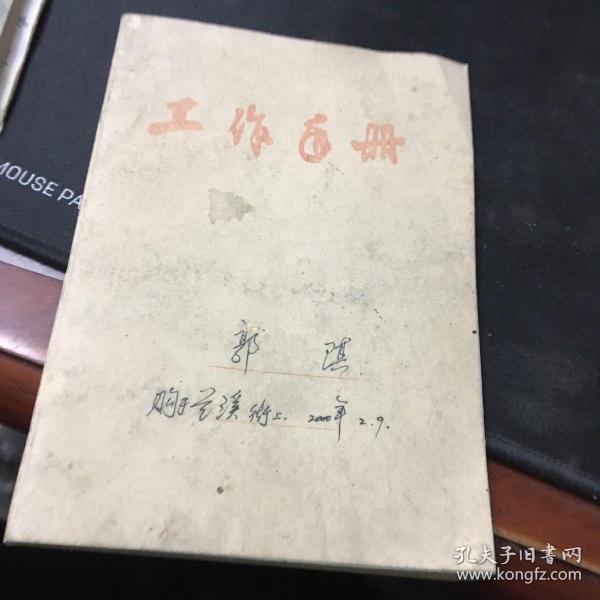 工作手册
MOUSE PA
郭 琪
购于兰溪街上. 2000年2.9.
孔夫子旧书网
www.kongfz.com